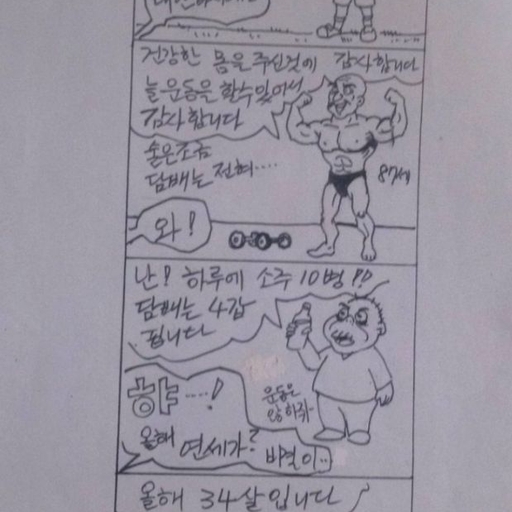 건강한 몸을 주신것에 감사합니다
늘 운동을 할수있어서
감사합니다
술은 조금
담배는 전혀....
87세
와!
난! 하루에 소주 10병!!
담배는 4갑
핍니다
햐....!
운동은
안하줘
올해 연세가? 비결이..
올해 34살입니다